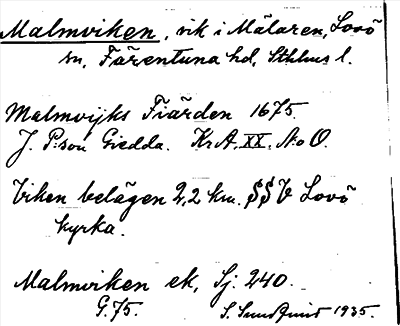 Malmviken, vik i Mälaren, Lovö
sn, Färentuna hd, Sthlms l.
Malmvijks Fiärden 1675.
J. P:son Giedda. Kr A, XX, No O.
Viken belägen 2,2 km. SSV Lovö
kyrka.
Malmviken ek, Sj. 240.
G. 75. S. Sundquist 1935.